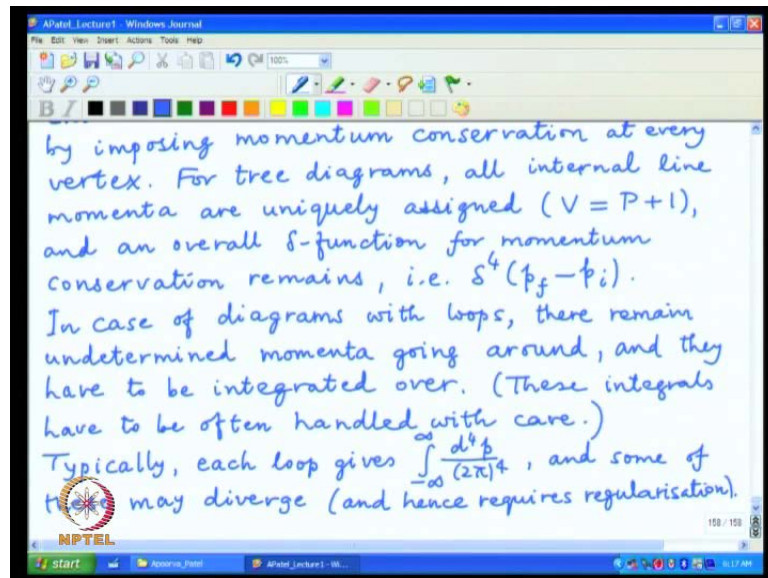 APatel_Lecture1 - Windows Journal
File Edit View Insert Actions Tools Help
100%
B I
by imposing momentum conservation at every
vertex. For tree diagrams, all internal line
momenta are uniquely assigned (V = P+1),
and an overall δ-function for momentum
conservation remains, i.e. δ⁴(p_f - p_i).
In case of diagrams with loops, there remain
undetermined momenta going around, and they
have to be integrated over. (These integrals
have to be often handled with care.)
Typically, each loop gives ∫_{-∞}^{∞} d⁴p/(2π)⁴, and some of
these may diverge (and hence requires regularisation).
158 / 158
NPTEL
start Apoorva_Patel APatel_Lecture1 - Wi... 6:17 AM